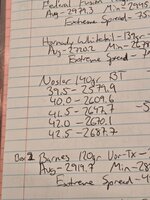 Federal Fusion
Avg - 2979.3 Min - 2945.
Extreme Spread - 75.
Hornady Whitetail - 139gr
Avg - 2770.2 Min - 267
Extreme Spread -
Nosler 140gr BT
39.5 - 2579.9
40.0 - 2609.6
41.5 - 2647.7
42.0 - 2670.1
42.5 - 2687.7
Barnes 120gr Vor-Tx -
Avg - 2919.7 Min - 28
Extreme Spread - 4